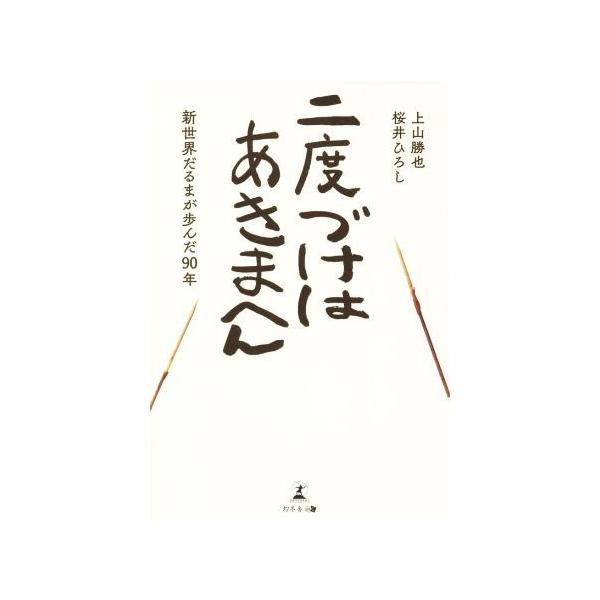 上山勝也
桜井ひろし
二度づけは
あきまへん
新世界だるまが歩んだ90年
幻冬舎